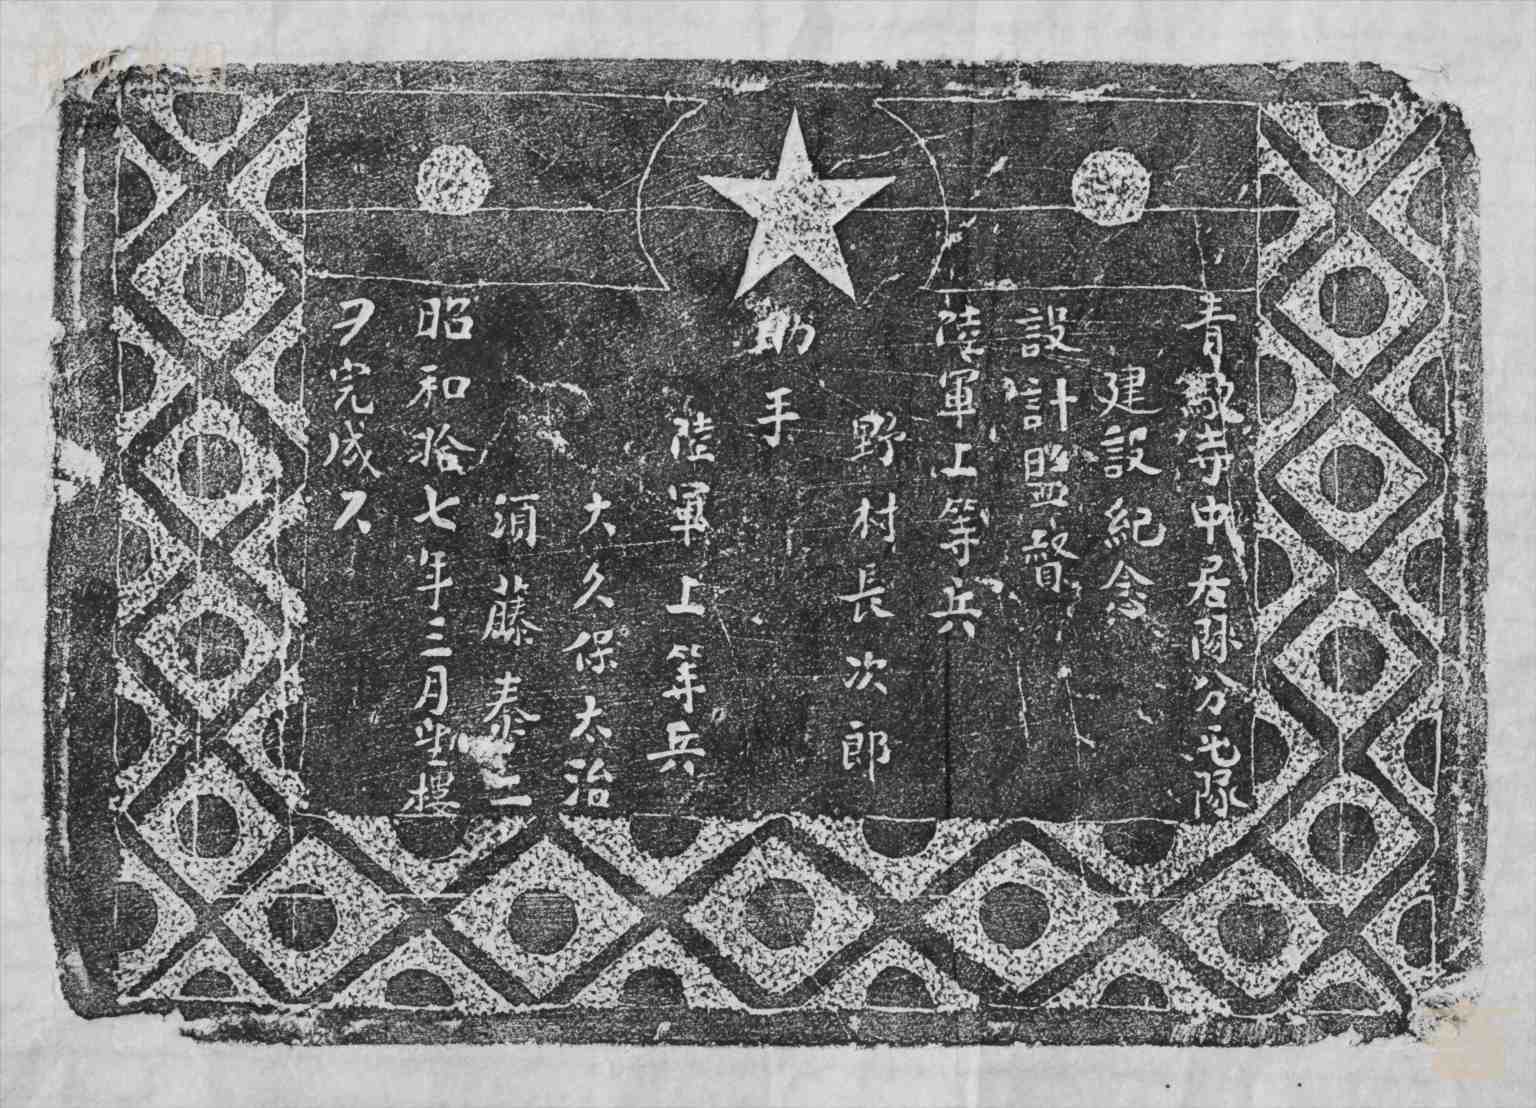 青駝寺中居隊分屯隊
建設紀念
設計監督
陸軍上等兵
野村長次郎
助手
陸軍上等兵
大久保太治
須藤泰二
昭和拾七年三月望樓
ヲ完成ス